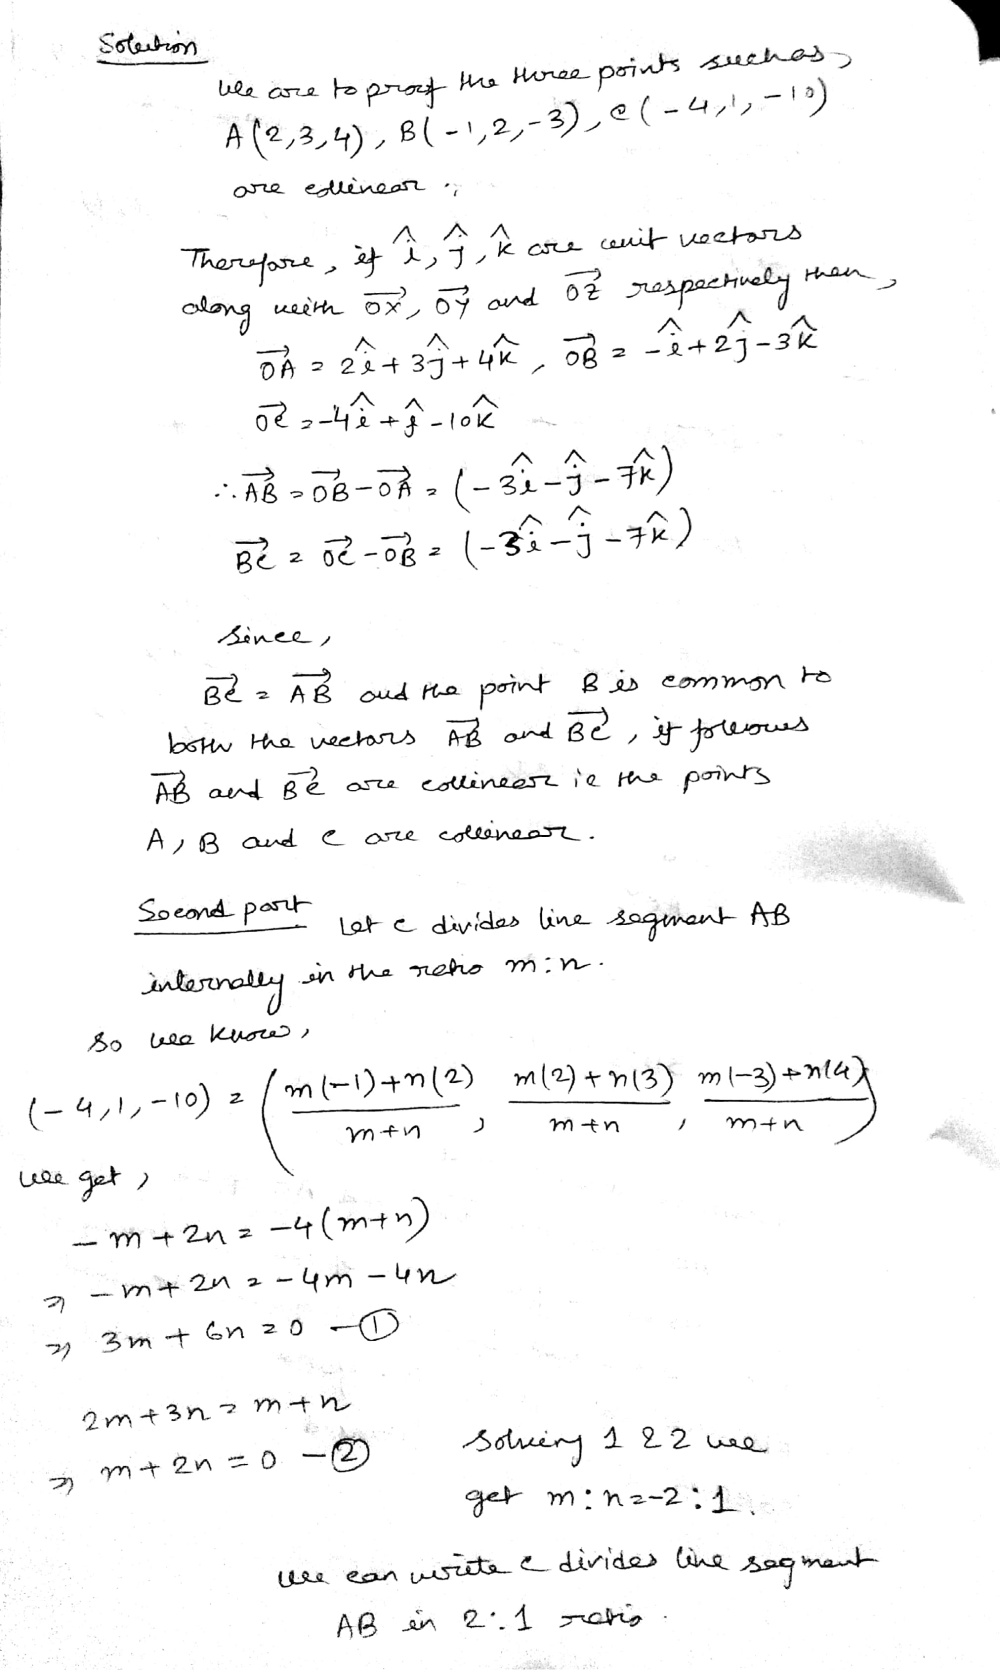 Solution
We are to proof the three points such as,
A(2,3,4), B(-1,2,-3), C(-4,1,-10)
are collinear.
Therefore, if î, ĵ, k̂ are unit vectors
along with OX⃗, OY⃗ and OZ⃗ respectively then,
OA⃗ = 2î+3ĵ+4k̂, OB⃗ = -î+2ĵ-3k̂
OC⃗ = -4î+ĵ-10k̂
∴ AB⃗ = OB⃗-OA⃗ = (-3î-ĵ-7k̂)
BC⃗ = OC⃗-OB⃗ = (-3î-ĵ-7k̂)
Since,
BC⃗ = AB⃗ and the point B is common to
both the vectors AB⃗ and BC⃗, if follows
AB⃗ and BC⃗ are collinear ie the points
A, B and C are collinear.
Second part Let C divides line segment AB
internally in the ratio m:n.
So we know,
(-4,1,-10) = ( m(-1)+n(2) / m+n , m(2)+n(3) / m+n , m(-3)+n(4) / m+n )
we get,
-m+2n = -4(m+n)
⇒ -m+2n = -4m-4n
⇒ 3m+6n = 0 -①
2m+3n = m+n
⇒ m+2n = 0 -②
Solving 1 & 2 we
get m:n = -2:1.
We can write C divides line segment
AB in 2:1 ratio.